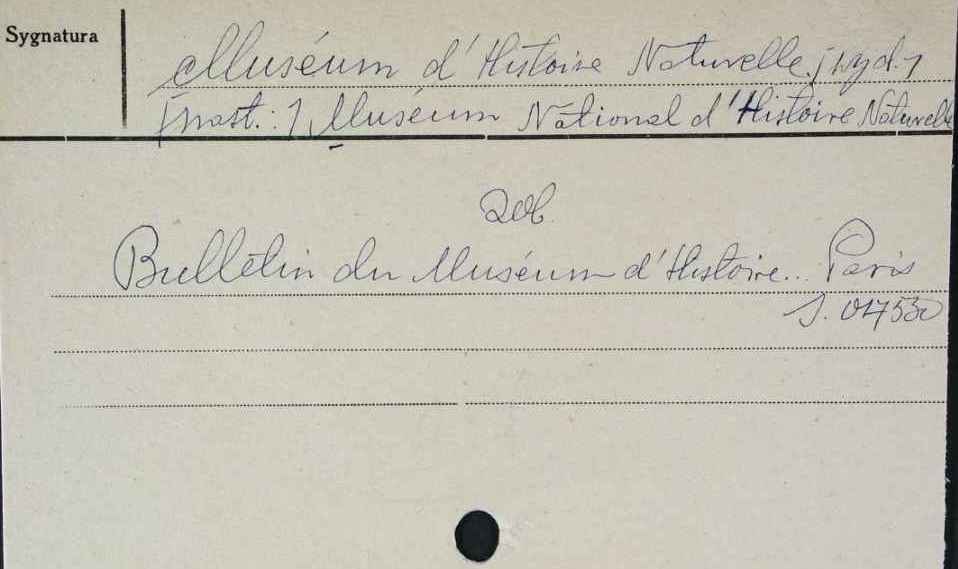 Sygnatura
Muséum d'Histoire Naturelle [wyd.]
[nast.:] Muséum National d'Histoire Naturelle
zob.
Bulletin du Muséum d'Histoire... Paris